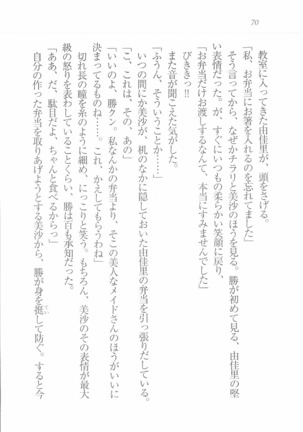 70
教室に入ってきた由佳里が、頭をさげる。
「私、お弁当にお箸を入れるのを忘れてました」
そう言ってから、なぜかチラリと美沙のほうを見る。勝が初めて見る、由佳里の堅
い表情だった。が、すぐにいつもの柔らかい笑顔に戻り、
「お弁当だけお渡しするなんて、本当にすみませんでした」
ぴききっ!!
また音が聞こえた気がした。
「ふうん、そういうこと」
いつの間にか美沙が、机のなかに隠しておいた由佳里の弁当を引っ張りだしている。
「こ、これは、その、あの」
「いいのよ、勝クン。私なんかの弁当より、そこの美人なメイドさんのほうがいいに
決まってるものね……。これ、かえしてもらうわね」
切れ長の瞳を糸のように細め、にっこりと笑う。もちろん、美沙のその表情が最大
級の怒りを表わしていることくらい、勝は百も承知だった。
「ああ、だ、駄目だよ。ちゃんと食べるからっ」
自分の作った弁当を取りあげようとする美沙から、勝が身を挺して防ぐ。すると今
てい